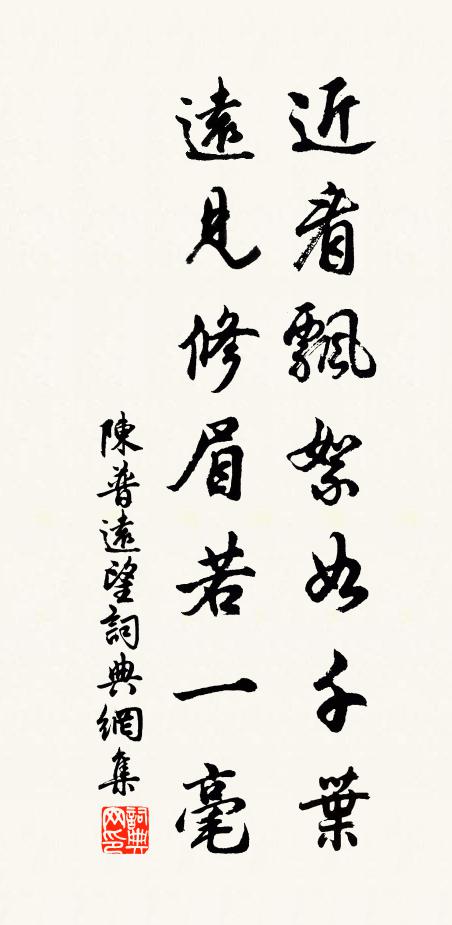 近看飄絮如千葉
遠見修眉若一毫
陳普遠望詞典網集
詞典網印